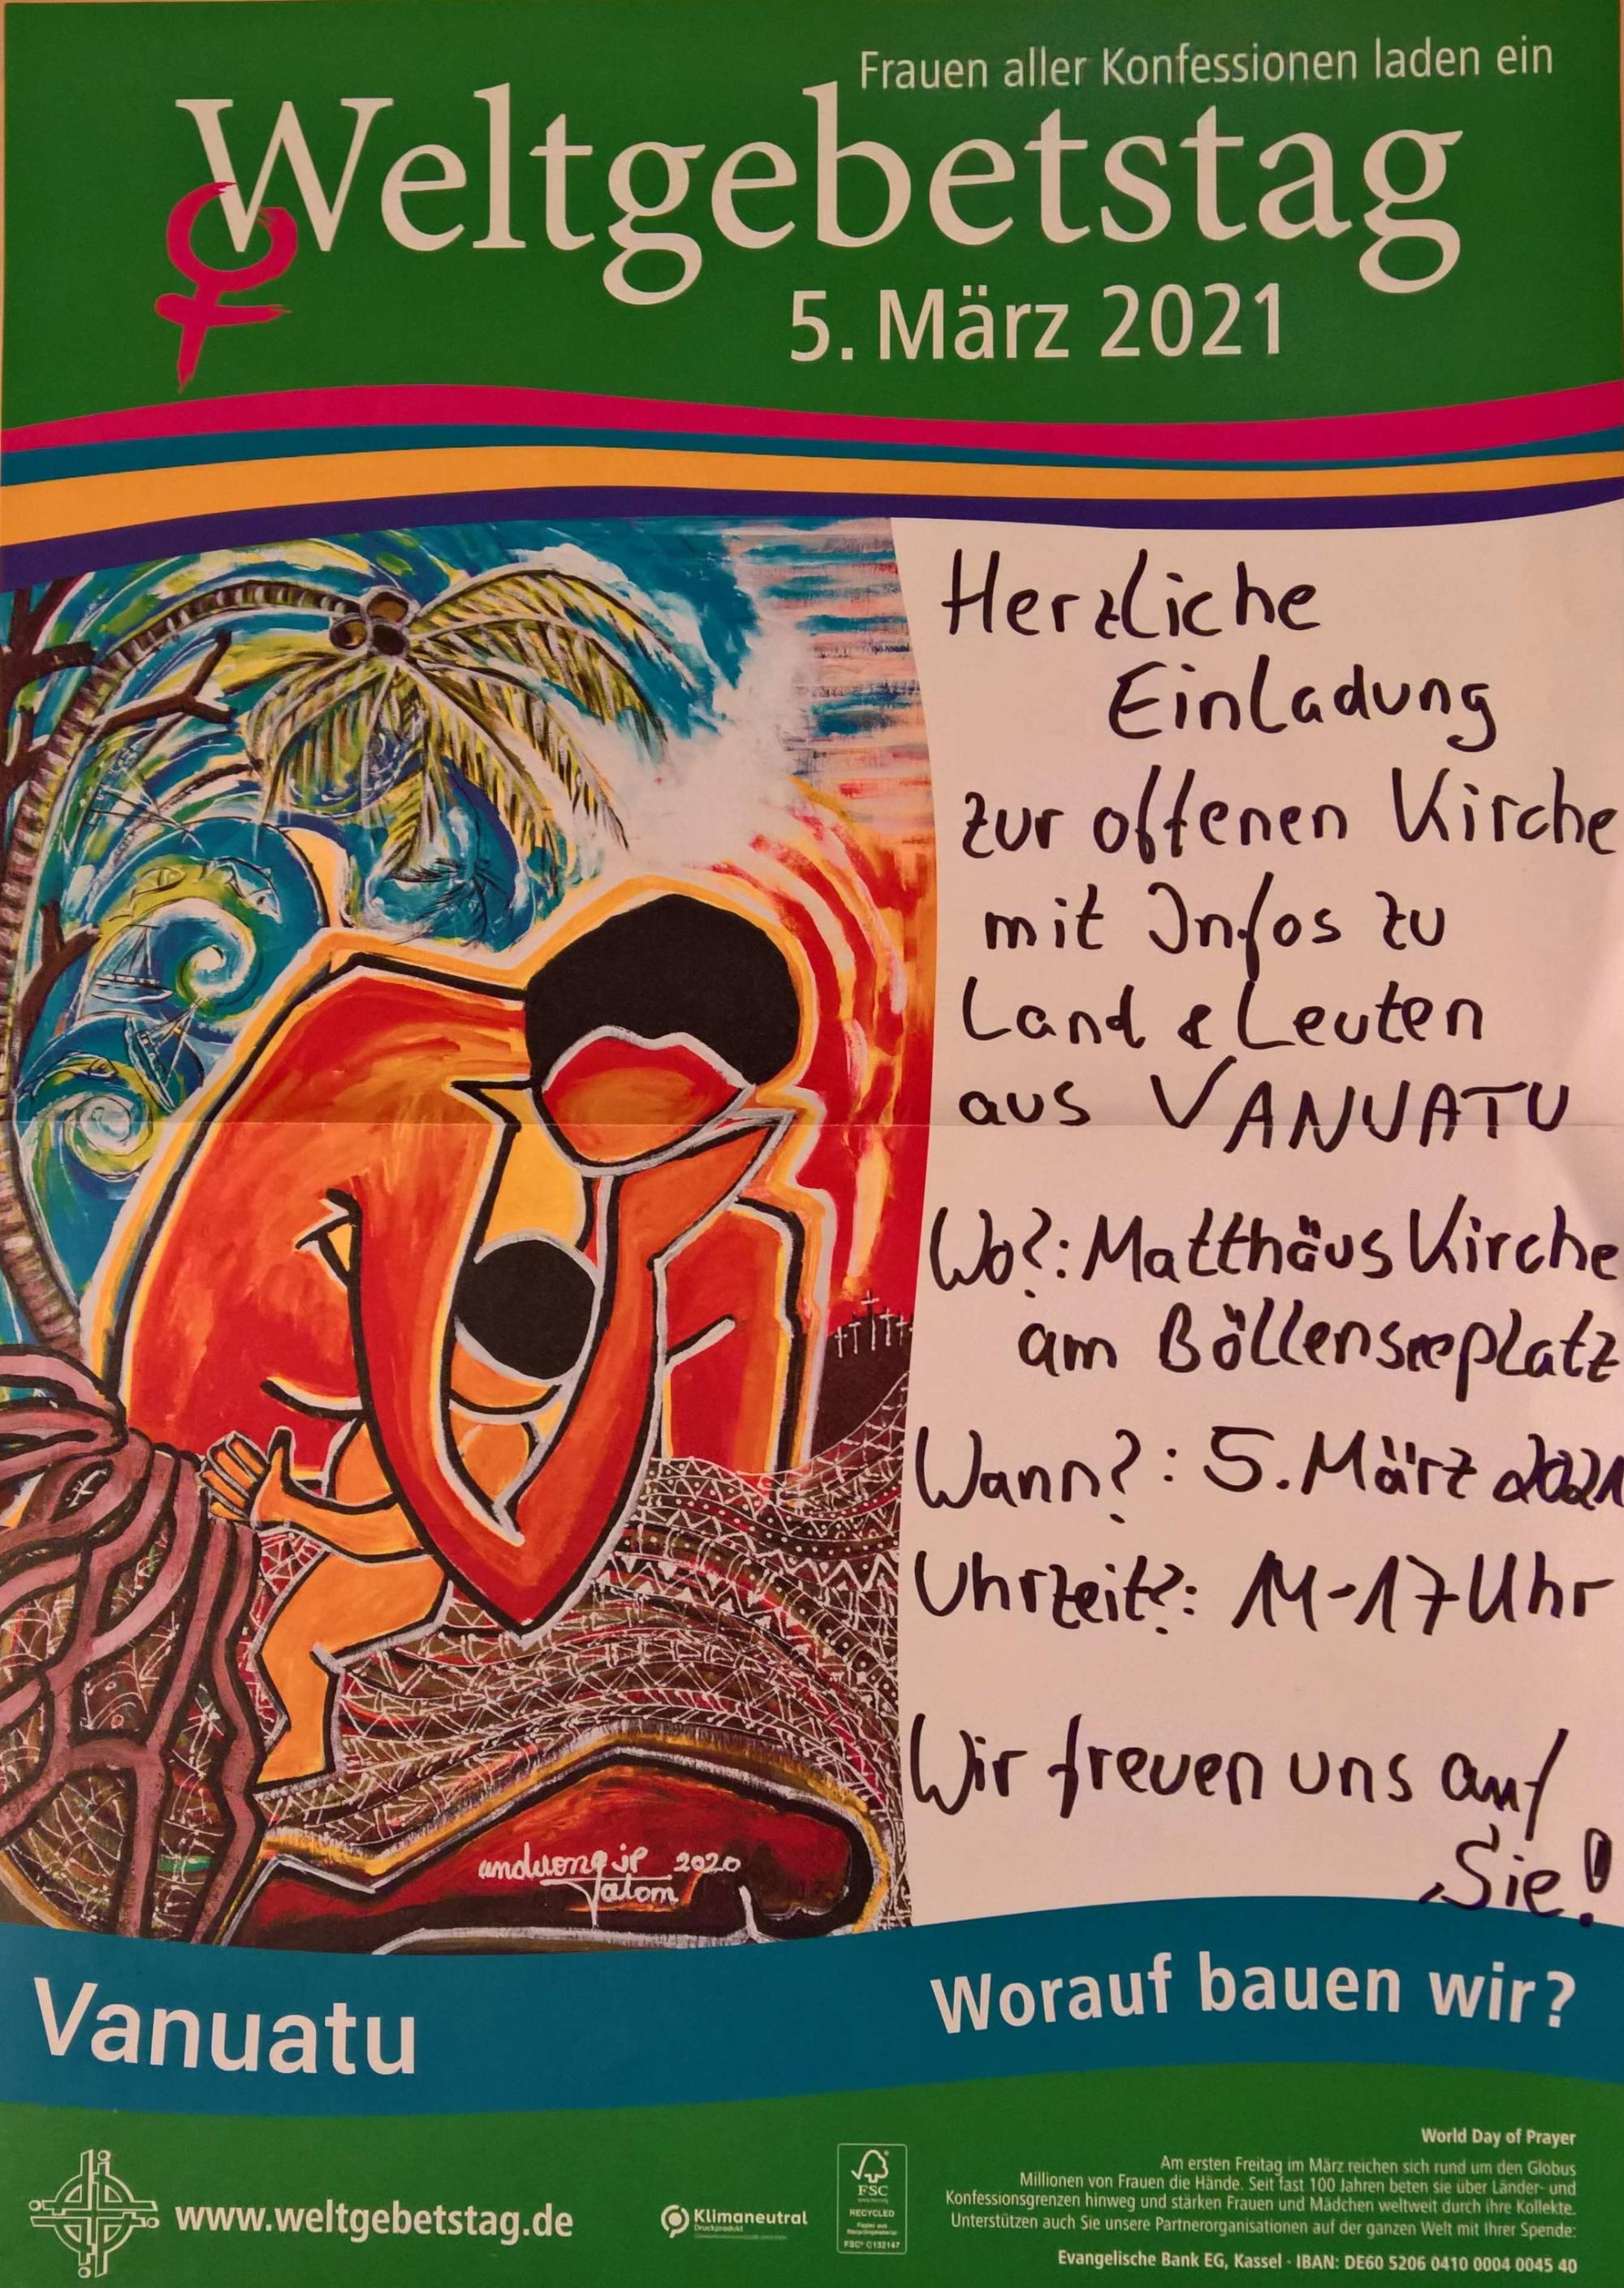 Frauen aller Konfessionen laden ein
Weltgebetstag
5. März 2021
Herzliche
Einladung
zur offenen Kirche
mit Infos zu
Land & Leuten
aus VANUATU
Wo?: Matthäus Kirche
am Böllenseeplatz
Wann?: 5. März 2021
Uhrzeit?: 11-17 Uhr
Wir freuen uns auf
Sie!
2020
Vanuatu
Worauf bauen wir?
www.weltgebetstag.de
Klimaneutral
Druckprodukt
FSC
RECYCLED
FSC® C132147
World Day of Prayer
Am ersten Freitag im März reichen sich rund um den Globus
Millionen von Frauen die Hände. Seit fast 100 Jahren beten sie über Länder- und
Konfessionsgrenzen hinweg und stärken Frauen und Mädchen weltweit durch ihre Kollekte.
Unterstützen auch Sie unsere Partnerorganisationen auf der ganzen Welt mit Ihrer Spende:
Evangelische Bank EG, Kassel · IBAN: DE60 5206 0410 0004 0045 40